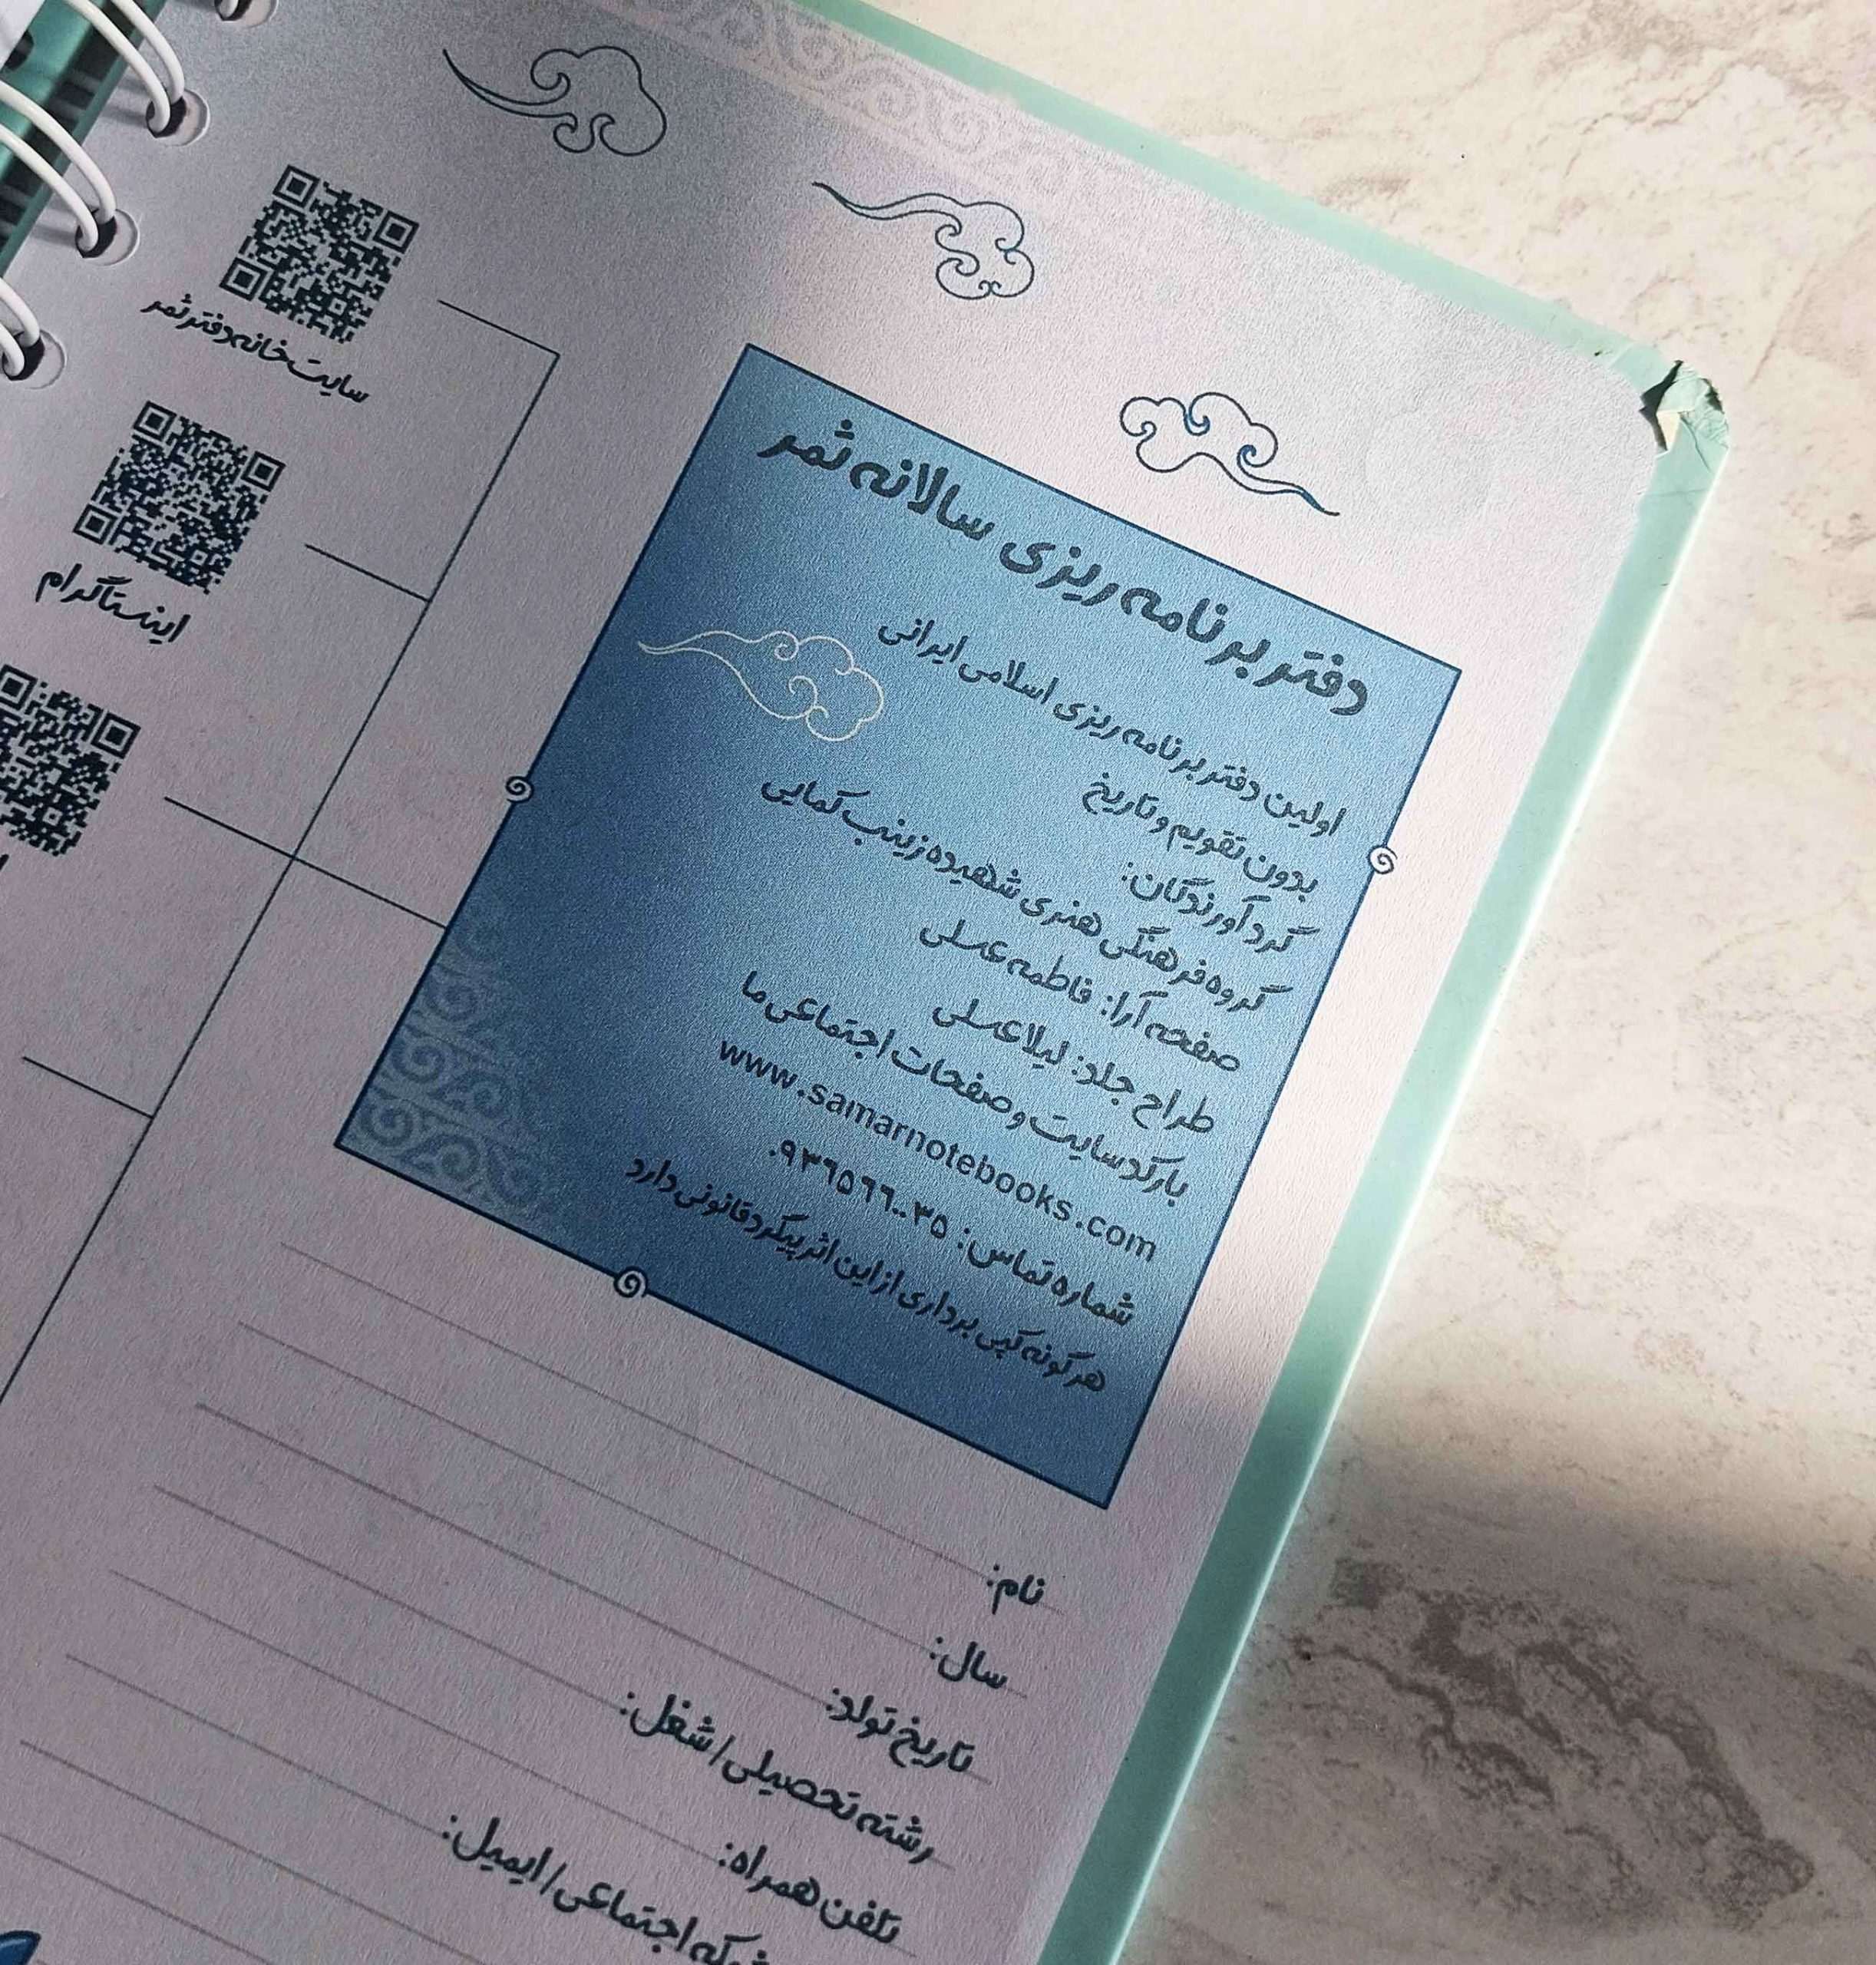 دفتر برنامه ریزی سالانه ثمر
اولین دفتر برنامه ریزی اسلامی ایرانی
بدون تقویم و تاریخ
گردآورندگان:
گروه فرهنگی هنری شهیده زینب کمایی
صفحه آرا: فاطمه عسلی
طراح جلد: لیلا عسلی
بارکد سایت و صفحات اجتماعی ما
www.samarnotebooks.com
شماره تماس: ۰۹۳۶۵۶۶۰۰۳۵
هر گونه کپی برداری از این اثر پیگرد قانونی دارد
سایت خانه دفتر ثمر
اینستاگرام
نام:
سال:
تاریخ تولد:
رشته تحصیلی / شغل:
تلفن همراه:
شبکه اجتماعی / ایمیل: